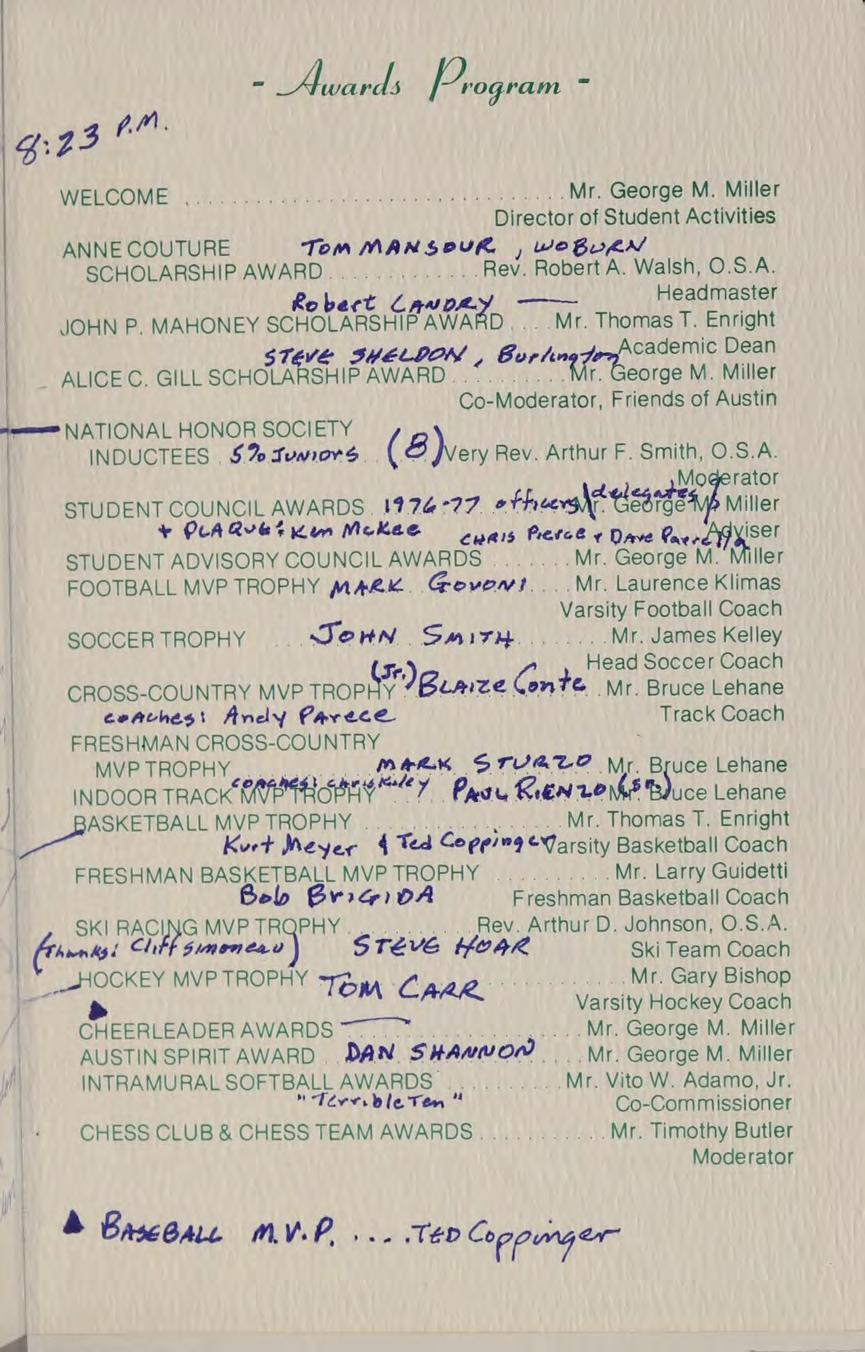 - Awards Program -
8:23 P.M.
WELCOME .................................. Mr. George M. Miller
Director of Student Activities
ANNE COUTURE TOM MANSOUR, WOBURN
SCHOLARSHIP AWARD ............. Rev. Robert A. Walsh, O.S.A.
Robert LANDRY — Headmaster
JOHN P. MAHONEY SCHOLARSHIP AWARD .... Mr. Thomas T. Enright
STEVE SHELDON, Burlington Academic Dean
ALICE C. GILL SCHOLARSHIP AWARD .......... Mr. George M. Miller
Co-Moderator, Friends of Austin
NATIONAL HONOR SOCIETY
INDUCTEES . 5% JUNIORS . (8) Very Rev. Arthur F. Smith, O.S.A.
Moderator
STUDENT COUNCIL AWARDS . 1976-77 officers/delegates Mr. George M. Miller
+ PLAQUE: Ken McKee CHRIS Pierce + DAVE Adviser
STUDENT ADVISORY COUNCIL AWARDS ....... Mr. George M. Miller
FOOTBALL MVP TROPHY MARK GOVONI .... Mr. Laurence Klimas
Varsity Football Coach
SOCCER TROPHY ... JOHN SMITH ........ Mr. James Kelley
Head Soccer Coach
CROSS-COUNTRY MVP TROPHY (Jr.) BLAIZE Conte . Mr. Bruce Lehane
coaches: Andy PARECE Track Coach
FRESHMAN CROSS-COUNTRY
MVP TROPHY MARK STURZO . Mr. Bruce Lehane
coaches: chris Kiley
INDOOR TRACK MVP TROPHY .... PAUL RIENZO (SR) Mr. Bruce Lehane
BASKETBALL MVP TROPHY .................. Mr. Thomas T. Enright
Kurt Meyer & Ted Coppinger Varsity Basketball Coach
FRESHMAN BASKETBALL MVP TROPHY .......... Mr. Larry Guidetti
Bob BRIGIDA Freshman Basketball Coach
SKI RACING MVP TROPHY ............ Rev. Arthur D. Johnson, O.S.A.
(Thanks: Cliff Simoneau) STEVE HOAR Ski Team Coach
HOCKEY MVP TROPHY TOM CARR ............ Mr. Gary Bishop
Varsity Hockey Coach
▲
CHEERLEADER AWARDS — .................. Mr. George M. Miller
AUSTIN SPIRIT AWARD . DAN SHANNON .... Mr. George M. Miller
INTRAMURAL SOFTBALL AWARDS .......... Mr. Vito W. Adamo, Jr.
"Terrible Ten" Co-Commissioner
CHESS CLUB & CHESS TEAM AWARDS ........... Mr. Timothy Butler
Moderator
▲ BASEBALL M.V.P. .... TED Coppinger